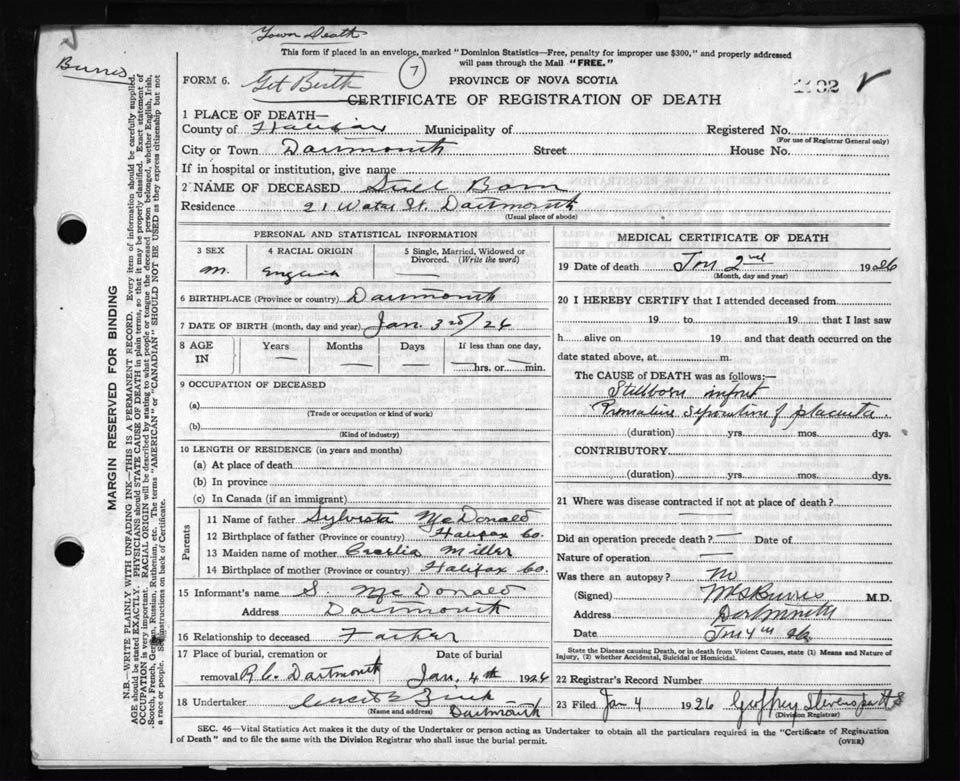 Town Death
This form if placed in an envelope, marked "Dominion Statistics—Free, penalty for improper use $300," and properly addressed
will pass through the Mail "FREE."
Burris
FORM 6.
Get Birth
7
PROVINCE OF NOVA SCOTIA
1102
CERTIFICATE OF REGISTRATION OF DEATH
1 PLACE OF DEATH—
County of Halifax Municipality of Registered No.
(For use of Registrar General only)
City or Town Dartmouth Street House No.
If in hospital or institution, give name
2 NAME OF DECEASED Still Born
Residence 21 Water St. Dartmouth
(Usual place of abode)
PERSONAL AND STATISTICAL INFORMATION
3 SEX 4 RACIAL ORIGIN 5 Single, Married, Widowed or Divorced. (Write the word)
M. English —
6 BIRTHPLACE (Province or country) Dartmouth
7 DATE OF BIRTH (month, day and year) Jan. 3rd/26
8 AGE IN Years Months Days If less than one day,
— — — hrs. or min.
9 OCCUPATION OF DECEASED
(a)
(Trade or occupation or kind of work)
(b)
(Kind of industry)
10 LENGTH OF RESIDENCE (in years and months)
(a) At place of death
(b) In province
(c) In Canada (if an immigrant)
Parents
11 Name of father Sylvester McDonald
12 Birthplace of father (Province or country) Halifax Co.
13 Maiden name of mother Cecelia Miller
14 Birthplace of mother (Province or country) Halifax Co.
15 Informant's name S. McDonald
Address Dartmouth
16 Relationship to deceased Father
17 Place of burial, cremation or removal Date of burial
R.C. Dartmouth Jan. 4th 1926
18 Undertaker Zink
(Name and address) Dartmouth
MEDICAL CERTIFICATE OF DEATH
19 Date of death Jan 2nd 1926
(Month, day and year)
20 I HEREBY CERTIFY that I attended deceased from
19 to 19 that I last saw
h alive on 19 and that death occurred on the
date stated above, at m.
The CAUSE of DEATH was as follows:—
Stillborn infant
Premature separation of placenta.
(duration) yrs. mos. dys.
CONTRIBUTORY
(duration) yrs. mos. dys.
21 Where was disease contracted if not at place of death?
Did an operation precede death? — Date of
Nature of operation —
Was there an autopsy? No
(Signed) Burris M.D.
Address Dartmouth
Date Jan 4th 26
State the Disease causing Death, or in death from Violent Causes, state (1) Means and Nature of
Injury, (2) whether Accidental, Suicidal or Homicidal.
22 Registrar's Record Number
23 Filed Jan 4 1926 Geoffrey Stevens
(Division Registrar)
SEC. 46—Vital Statistics Act makes it the duty of the Undertaker or person acting as Undertaker to obtain all the particulars required in the "Certificate of Registration
of Death" and to file the same with the Division Registrar who shall issue the burial permit.
(OVER)
MARGIN RESERVED FOR BINDING
N.B.—WRITE PLAINLY WITH UNFADING INK—THIS IS A PERMANENT RECORD. Every item of information should be carefully supplied.
AGE should be stated EXACTLY. PHYSICIANS should STATE CAUSE OF DEATH in plain terms, so that it may be properly classified. Exact statement of
OCCUPATION is very important. RACIAL ORIGIN will be described by stating to what people or tongue the deceased person belonged, whether English, Irish,
Scotch, French, German, Russian, Ruthenian, etc. The terms "AMERICAN" or "CANADIAN" SHOULD NOT BE USED as they express citizenship but not
a race or people. See instructions on back of Certificate.